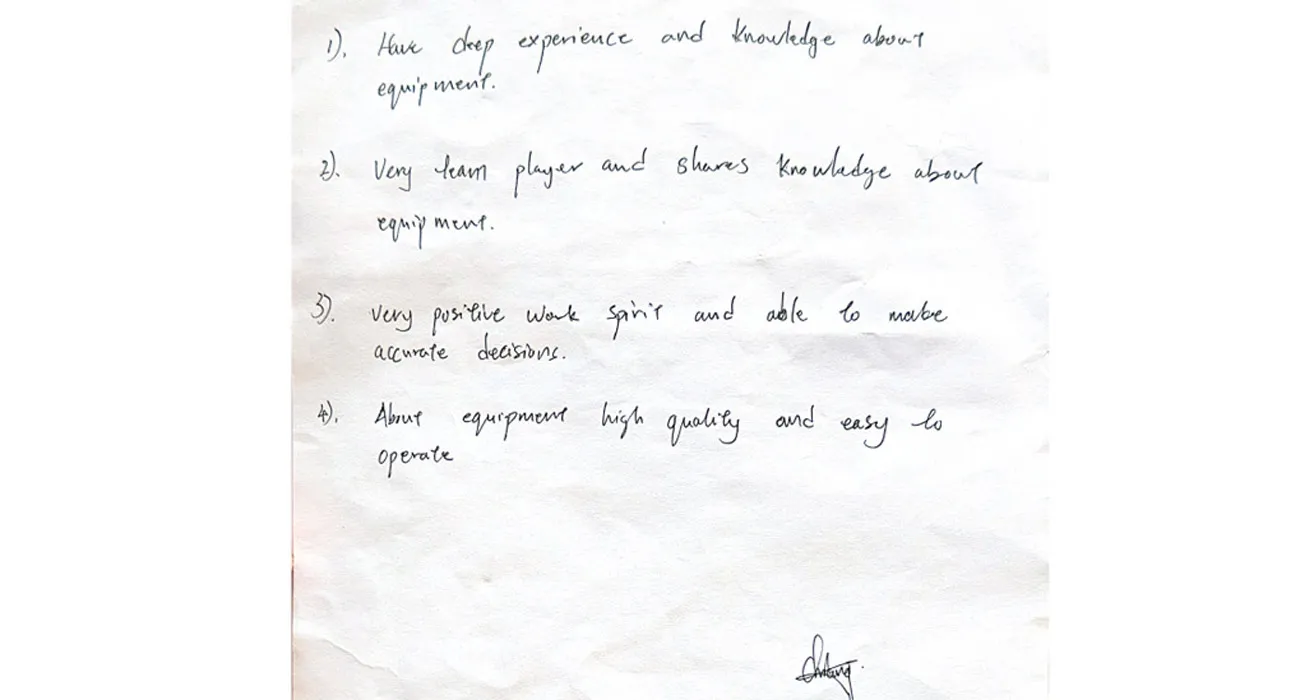 1). Have deep experience and knowledge about
equipment.
2). Very team player and shares knowledge about
equipment.
3). Very positive work spirit and able to make
accurate decisions.
4). About equipment high quality and easy to
operate